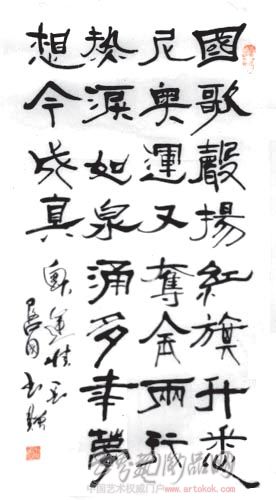 國歌聲揚紅旗升悉
尼奧運又奪金兩行
熱淚如泉涌多年夢
想今成真
奧運情
中国艺术权威门户 www.artokok.com